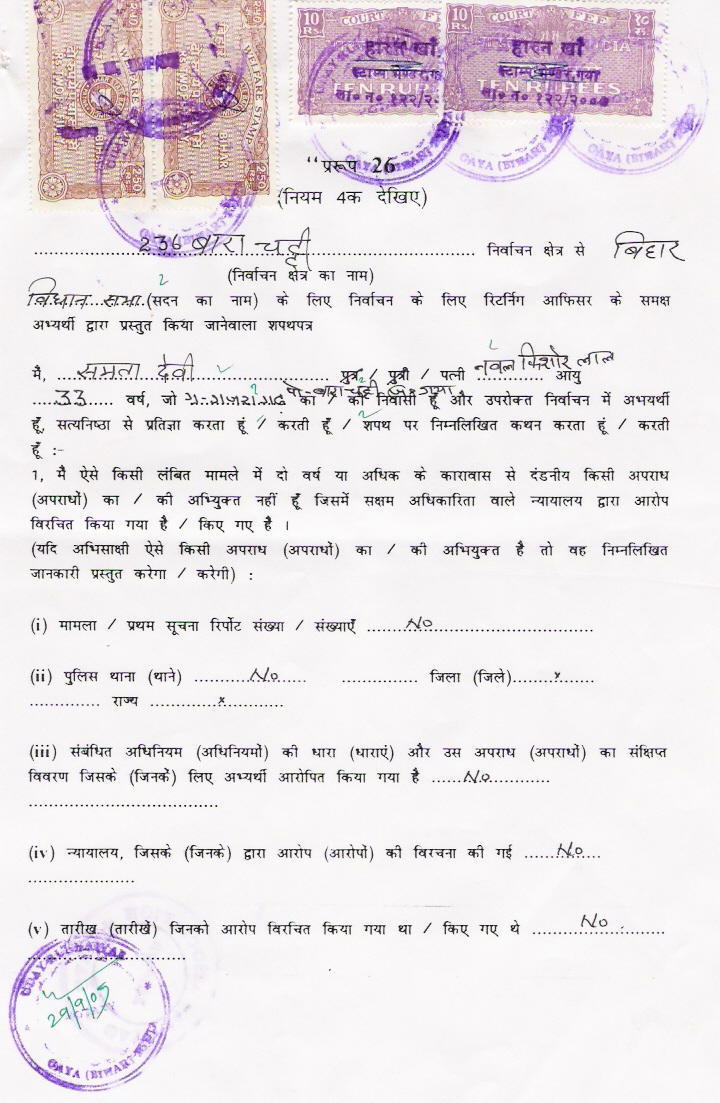 WELFARE STAMP
BIHAR
10 COURT FEE
Rs.
10 COURT FEE १०
Rs. रु०
हारून खाँ
स्टाम्प भेण्डर, गया
TEN RUPEES
हारून खाँ
स्टाम्प भेण्डर, गया
TEN RUPEES
GAYA (BIHAR)
GAYA (BIHAR)
GAYA (BIHAR)
“प्ररूप 26
(नियम 4क देखिए)
236 बाराचट्टी निर्वाचन क्षेत्र से बिहार
(निर्वाचन क्षेत्र का नाम)
विधान सभा (सदन का नाम) के लिए निर्वाचन के लिए रिटर्निंग आफिसर के समक्ष
अभ्यर्थी द्वारा प्रस्तुत किया जानेवाला शपथपत्र
मैं, समता देवी पुत्र / पुत्री / पत्नी नवल किशोर लाल आयु
33 वर्ष, जो का / की निवासी हूँ और उपरोक्त निर्वाचन में अभयर्थी
हूँ, सत्यनिष्ठा से प्रतिज्ञा करता हूं / करती हूँ / शपथ पर निम्नलिखित कथन करता हूं / करती
हूँ :-
1, मै ऐसे किसी लंबित मामले में दो वर्ष या अधिक के कारावास से दंडनीय किसी अपराध
(अपराधों) का / की अभियुक्त नहीं हूँ जिसमें सक्षम अधिकारिता वाले न्यायालय द्वारा आरोप
विरचित किया गया है / किए गए है ।
(यदि अभिसाक्षी ऐसे किसी अपराध (अपराधों) का / की अभियुक्त है तो वह निम्नलिखित
जानकारी प्रस्तुत करेगा / करेगी) :
(i) मामला / प्रथम सूचना रिर्पोट संख्या / संख्याएँ No
(ii) पुलिस थाना (थाने) No जिला (जिले) x
राज्य x
(iii) संबंधित अधिनियम (अधिनियमों) की धारा (धाराएं) और उस अपराध (अपराधों) का संक्षिप्त
विवरण जिसके (जिनके) लिए अभ्यर्थी आरोपित किया गया है No
(iv) न्यायालय, जिसके (जिनके) द्वारा आरोप (आरोपों) की विरचना की गई No
(v) तारीख (तारीखें) जिनको आरोप विरचित किया गया था / किए गए थे No
29/9/05
GAYA (BIHAR)